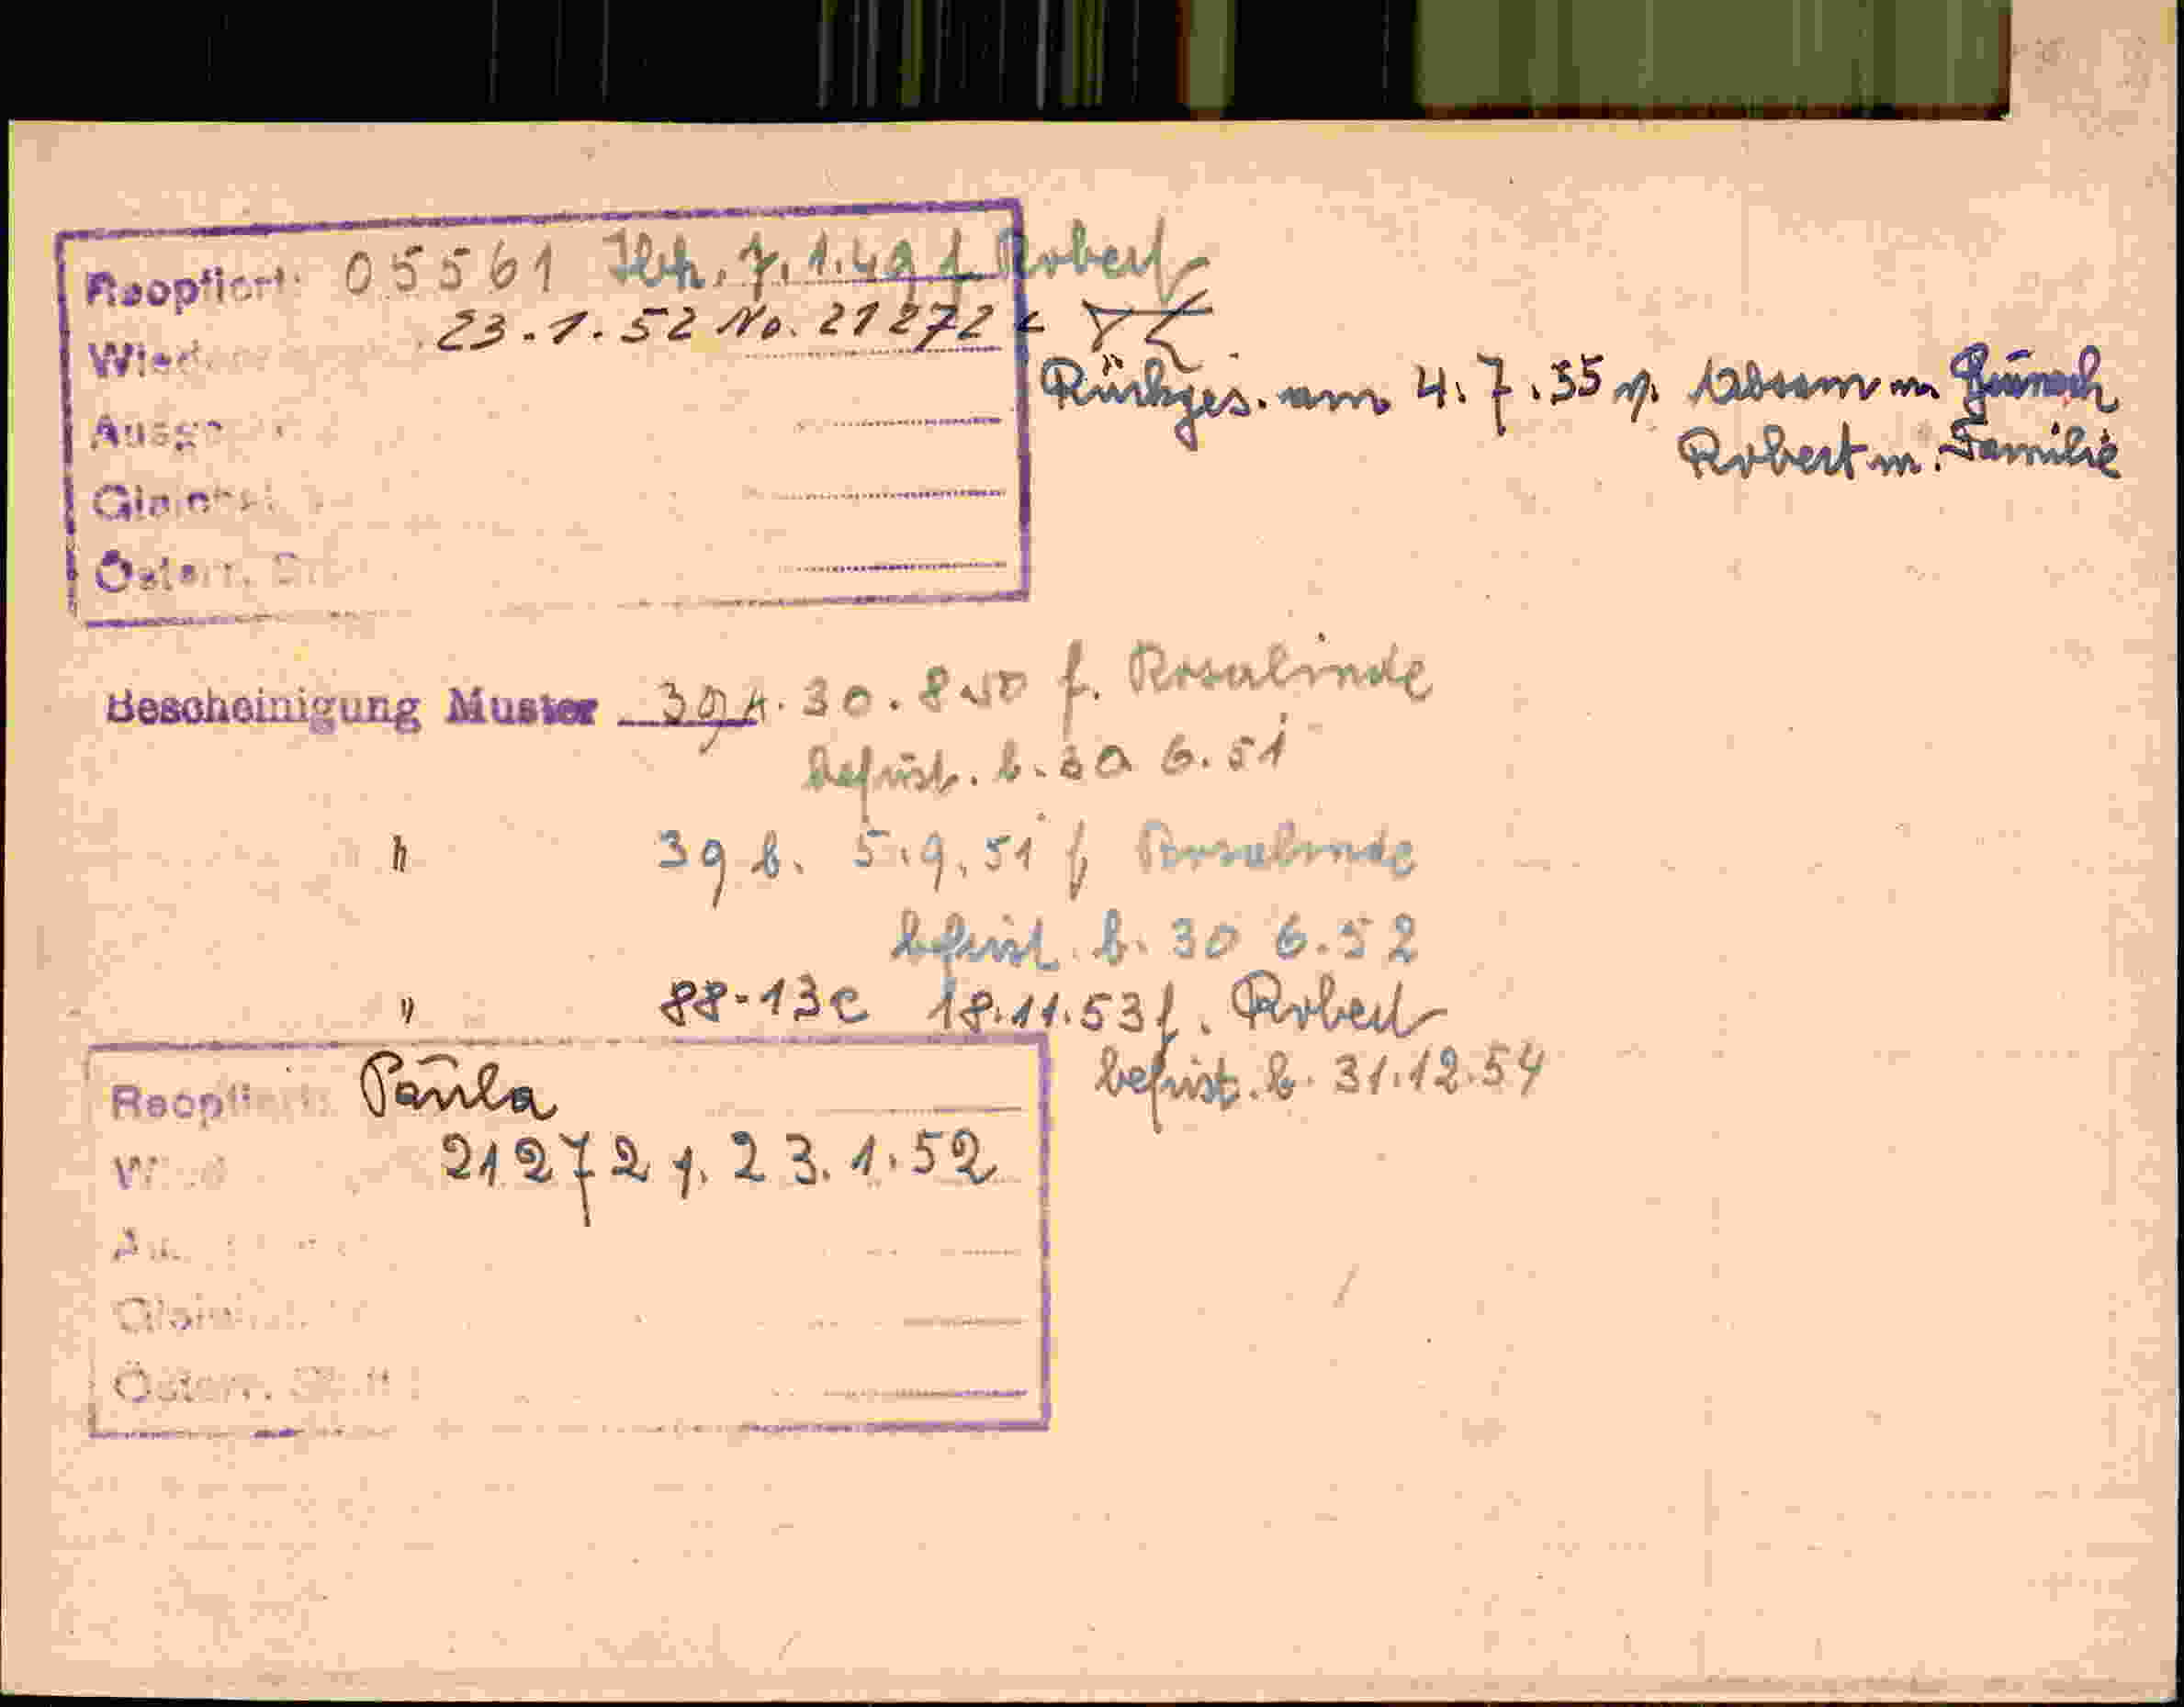 Reoptiert: 05561 Ibk. 7.1.49 f. Robert
23.1.52 No. 21272
Rückges. am 4.7.35 v. Absam m.
Robert m. Familie
Österr.
Bescheinigung Muster 39 A. 30.8.50 f. Rosalinde
befrist. b. 30 6.51
" 39 b. 5.9.51 f Rosalinde
befrist. b. 30 6.52
" 88-13c 18.11.53 f. Robert
befrist. b. 31.12.54
Reoptiert: Paula
21272 v. 23.1.52
Österr.